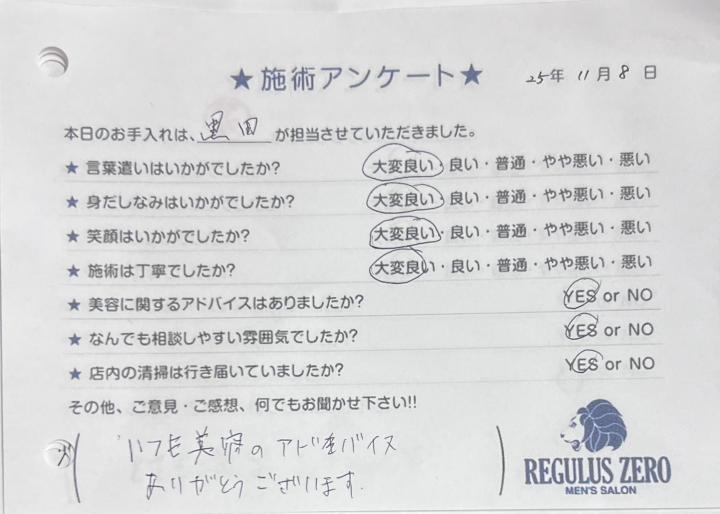 ★施術アンケート★ 25年 11月 8日
本日のお手入れは、黒田が担当させていただきました。
★ 言葉遣いはいかがでしたか? 大変良い・良い・普通・やや悪い・悪い
★ 身だしなみはいかがでしたか? 大変良い・良い・普通・やや悪い・悪い
★ 笑顔はいかがでしたか? 大変良い・良い・普通・やや悪い・悪い
★ 施術は丁寧でしたか? 大変良い・良い・普通・やや悪い・悪い
★ 美容に関するアドバイスはありましたか? YES or NO
★ なんでも相談しやすい雰囲気でしたか? YES or NO
★ 店内の清掃は行き届いていましたか? YES or NO
その他、ご意見・ご感想、何でもお聞かせ下さい!!
いつも美容のアドバイス
ありがとうございます.
REGULUS ZERO
MEN'S SALON